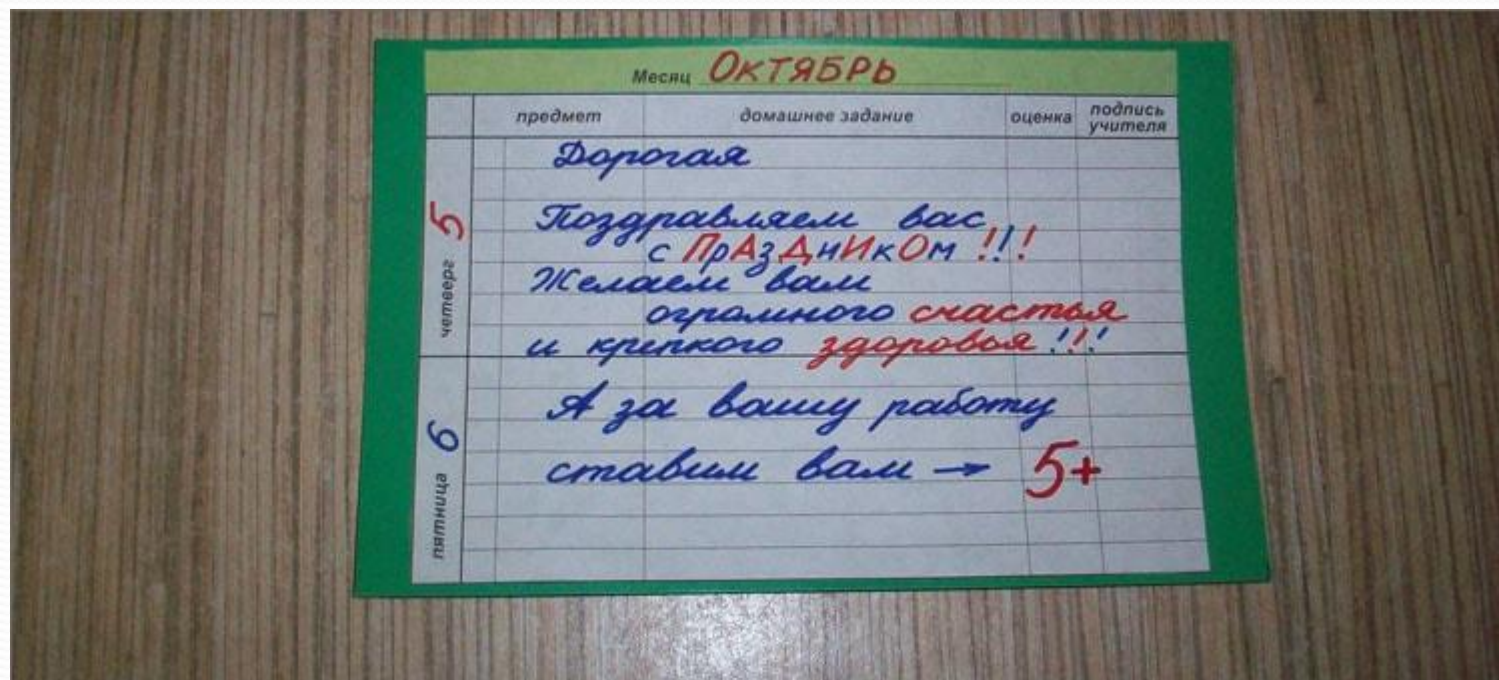 Месяц ОКТЯБРЬ
предмет домашнее задание оценка подпись учителя
Дорогая
четверг 5
Поздравляем вас
с ПрАзДнИкОм !!!
Желаем вам
огромного счастья
и крепкого здоровья !!!
пятница 6
А за вашу работу
ставим вам → 5+